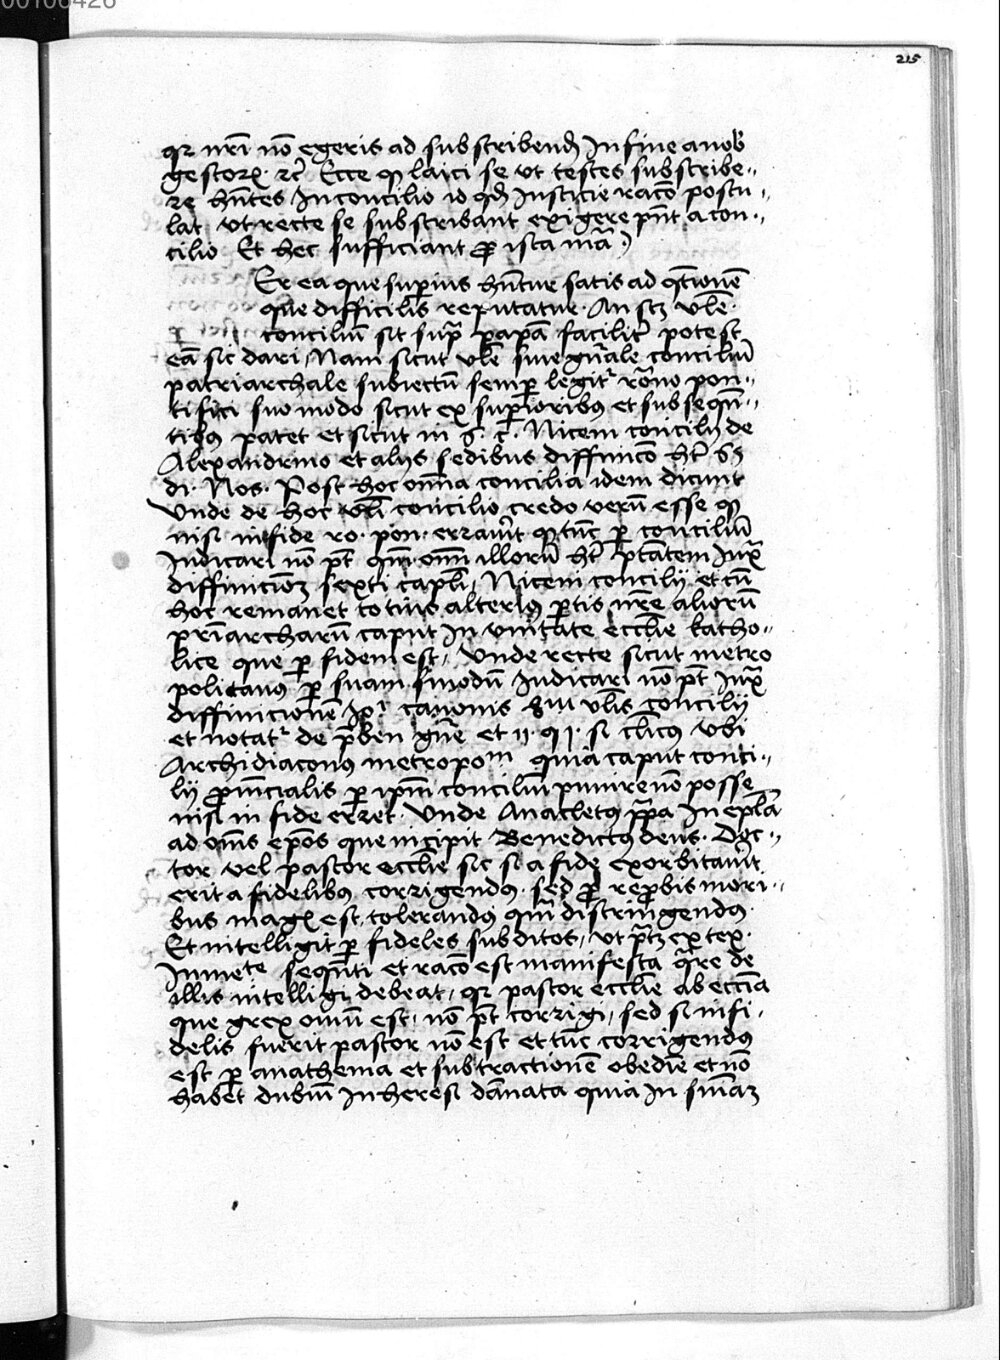 00106426
215
qr nri nō egeris ad subscribend In fine a nob
gestorum rc Ecce qp laici se vt testes subscribe-
re hntes In concilio id qd Iusticie racō postu-
lat vt recte se subscribant exigere pnt a con-
cilio Et hec sufficiant p ista mā
Er ea que superius hntur satis ad qtionē
que difficilis reputatur. An scz vle
conciliū sit supra papā faciliter potest
eā sic dari Nam sicut vle siue gnrale conciliū
patriarchale subiectū semper legitr rōno pon-
tifici suo modo sicut ex superioribus et subsequn-
tibus patet et sicut in 6. c. Niceni concilij de
Alexandrino et alijs sedibus diffinicō htr
di. Nos. Post hoc omnia concilia idem dicunt
Vnde de hoc vli concilio credo verū esse qp
nisi in fide ro. pon. erraurit qp tūc per conciliū
Iudicari nō pt qm omn illorū htr ptatem Iuxa
diffinicōez sexti capli Niceni concilij et cū
hoc remanet totius alterius partis nre aliorū
priarcharū caput In vnitate ecclie katho-
lice que per fidem est, Vnde recte sicut metro
politanus per suam sinodū Iudicari nō pt Iuxa
diffinicionē canonis 8ui vlis concilij
et notatr de preben gnē et ij. q j. si clicus vbi
Archidiaconus metropom quia caput conci-
lij prouincialis per ipm conciliū punire nō posse
nisi in fide erret. Vnde Anacletus papa In epla
ad omēs epōs que incipit Benedictus deus. Doc-
tor vel pastor ecclie sic si a fide exorbitauit
erit a fidelibus corrigendus. sed p reprobis mori-
bus magis est tolerandus qm distringendus
Et intelligit per fideles subditos, vt patz ex tex.
Inmete sequnti et racō est manifesta qre de
illis intelligi debeat, qr pastor ecclie ab eccia
que grex omū est, nō pt corrigi, sed si infi-
delis fuerit pastor nō est et tūc corrigendus
est per anathema et subtractionē obediē et nō
habet dubiū In heresi dānata quia In suiaz